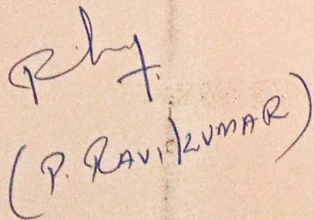 (P. RAVIKUMAR)